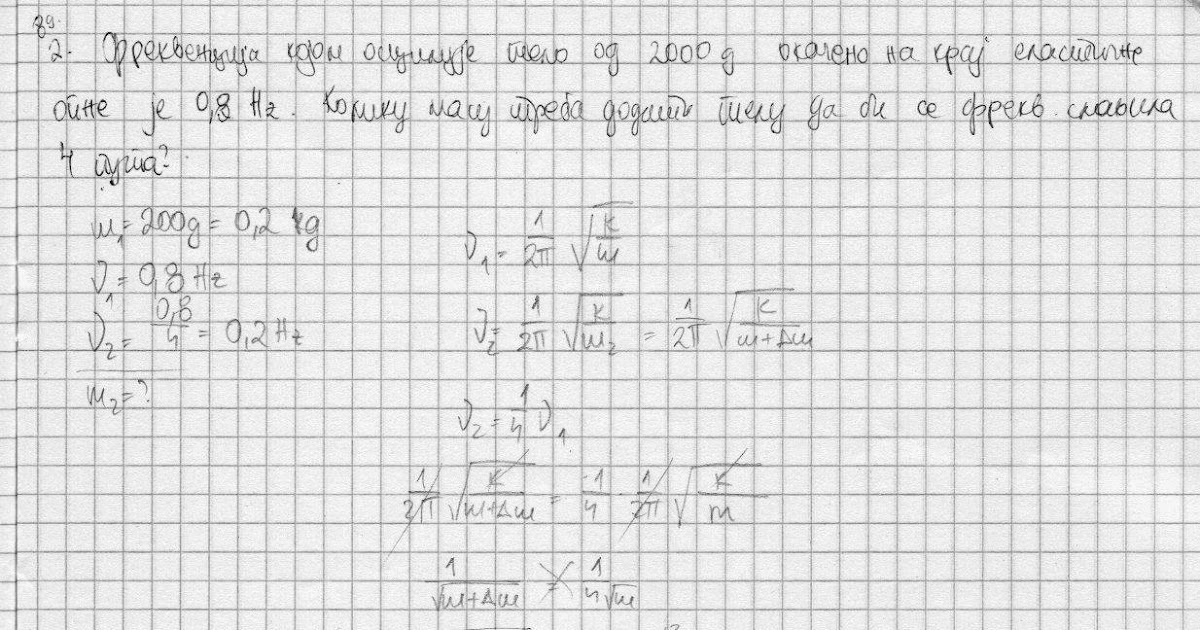 89.
2. Фреквенција којом осцилује тело од 2000 g окачено на крај еластичне
опне је 0,8 Hz. Колику масу треба додати телу да би се фрекв. смањила
4 пута?
m₁ = 200g = 0,2 kg
ν₁ = 1/2π √(k/m)
ν₁ = 0,8 Hz
ν₂ = 0,8/4 = 0,2 Hz
ν₂ = 1/2π √(k/m₂) = 1/2π √(k/m+Δm)
m₂ = ?
ν₂ = 1/4 ν₁
1/2π √(k/m+Δm) = 1/4 · 1/2π √(k/m)
1/√(m+Δm) = 1/4√m